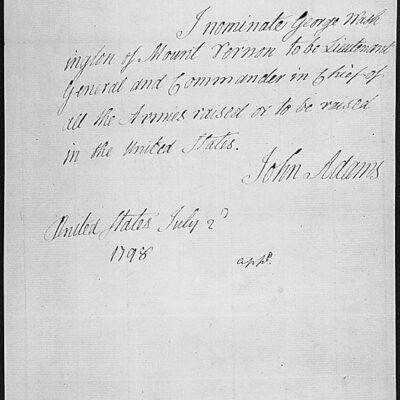 I nominate George Wash
ington of Mount Vernon to be Lieutenant
General and Commander in Chief of
all the Armies raised or to be raised
in the United States.
John Adams
United States July 2ᵈ
1798
appᵈ.